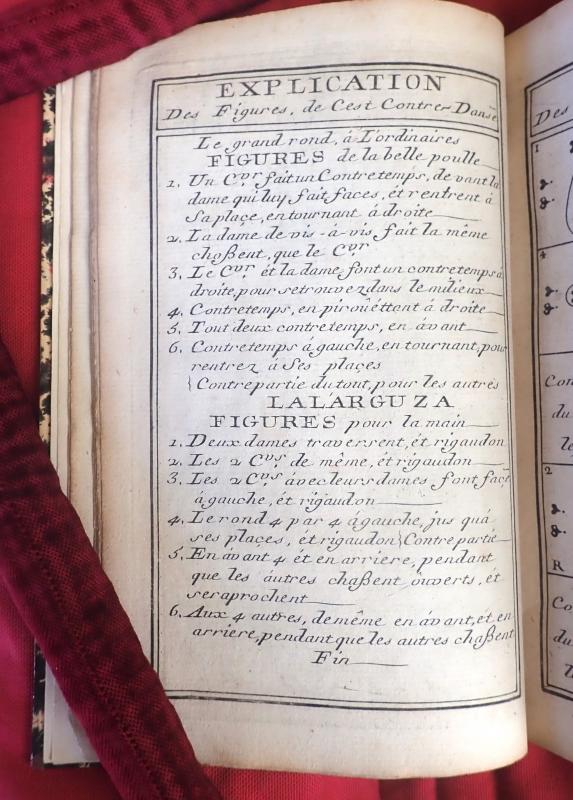 EXPLICATION
Des Figures, de Cest Contre-Danse
Le grand rond, à L'ordinaires
FIGURES de la belle poulle
1. Un Cvr fait un Contretemps, de vant la
dame qui luy fait faces, ét rentrent á
Sa place, en tournant á droite
2. La dame de vis-á-vis fait la même
choßent, que le Cvr
3. Le Cvr ét la dame font un contretemps a
droite, pour se trouvez dans le milieux
4. Contretemps, en piroüéttent á droite
5. Tout deux contretemps, en ávant
6. Contretemps á gauche, en tournant, pour
rentrez á Ses places
Contrepartie du tout, pour les autres
LALARGUZA
FIGURES pour la main
1. Deux dames traversent, ét rigaudon
2. Les 2 Cvrs de même, ét rigaudon
3. Les 2 Cvrs ávec leurs dames font face
á gauche, ét rigaudon
4. Le rond 4 par 4 á gauche, jus quá
ses places, ét rigaudon Contre partie
5. En ávant 4 ét en arriere, pendant
que les autres chaßent ouverts, ét
se raprochent
6. Aux 4 autres, de même en ávant, ét en
arriere, pendant que les autres chaßent
Fin
Des
1
4
Con
du
le
2
R
Co
du